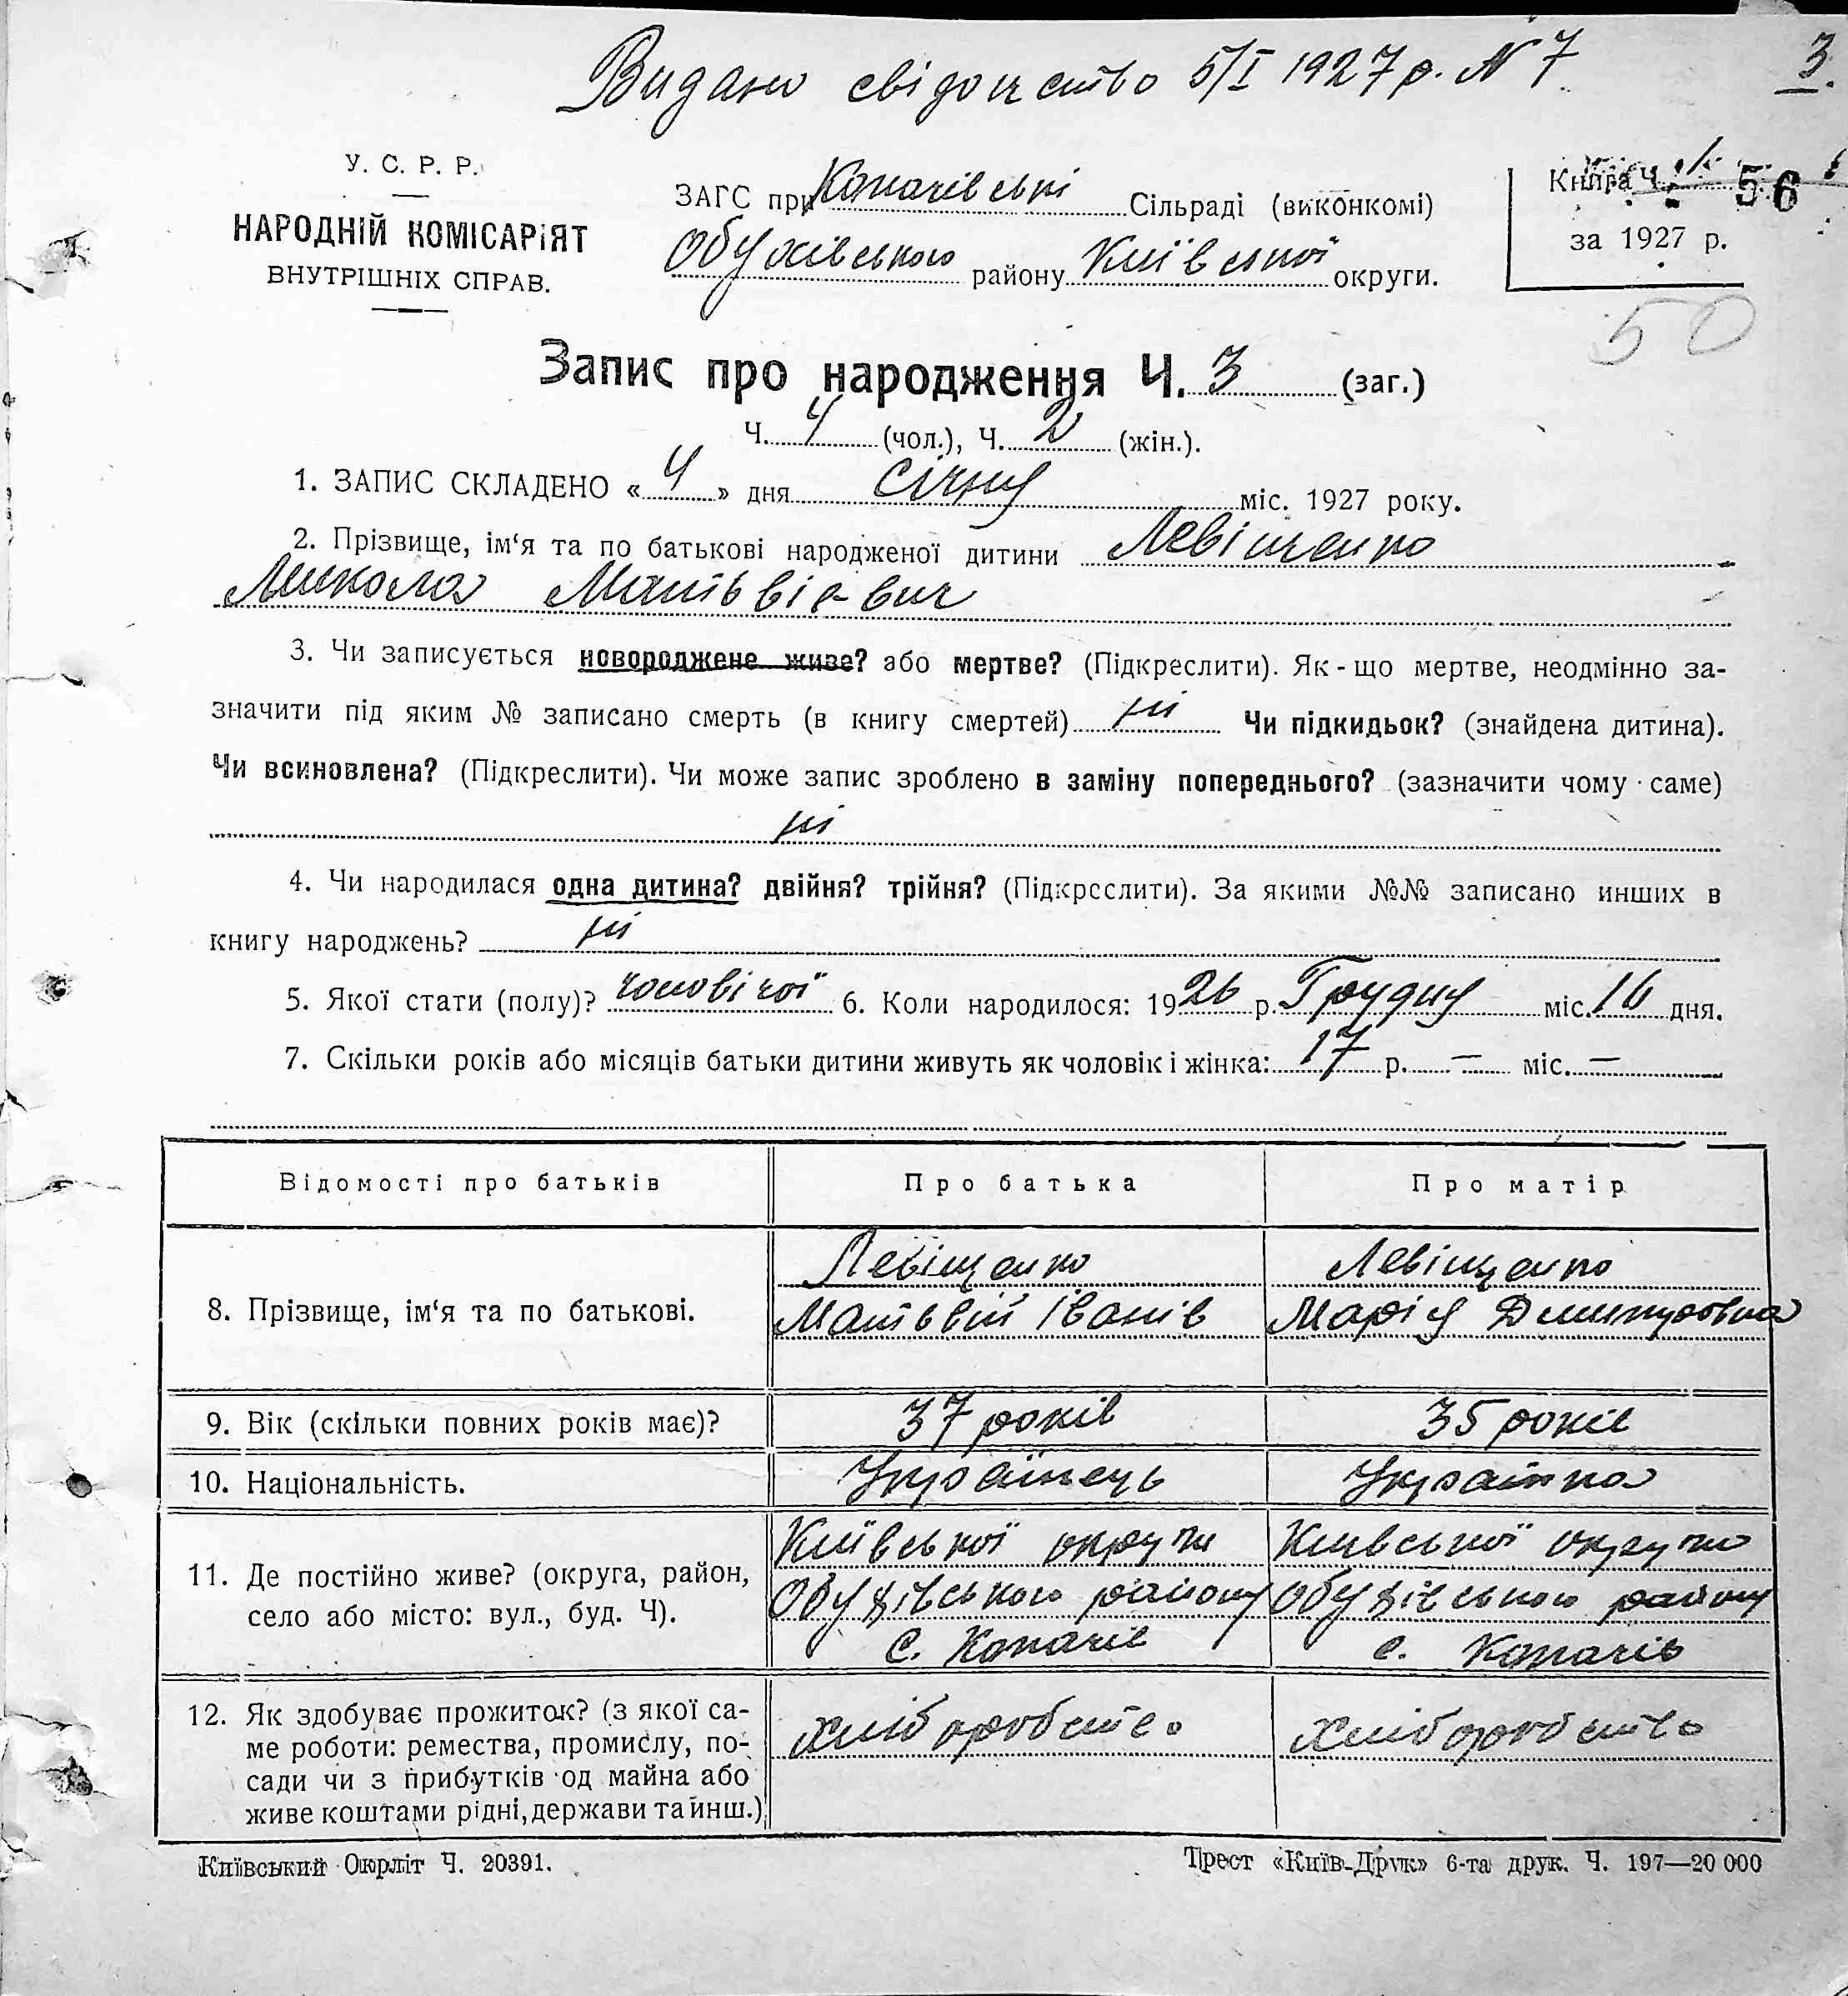 Видано свідоцтво 5/I 1927 р. N 7
3.
У. С. Р. Р.
НАРОДНІЙ КОМІСАРІЯТ
ВНУТРІШНІХ СПРАВ.
ЗАГС при Копачівській Сільраді (виконкомі)
Обухівського району Київської округи.
Книга Ч. 56
за 1927 р.
50
Запис про народження Ч. 3 (заг.)
Ч. (чол.), Ч. 2 (жін.).
1. ЗАПИС СКЛАДЕНО «4» дня Січня міс. 1927 року.
2. Прізвище, ім‘я та по батькові народженої дитини Левіщенко
Микола Матьвієвич
3. Чи записується новороджене живе? або мертве? (Підкреслити). Як-що мертве, неодмінно за-
значити під яким № записано смерть (в книгу смертей) ні Чи підкидьок? (знайдена дитина).
Чи всиновлена? (Підкреслити). Чи може запис зроблено в заміну попереднього? (зазначити чому саме)
ні
4. Чи народилася одна дитина? двійня? трійня? (Підкреслити). За якими №№ записано инших в
книгу народжень? ні
5. Якої стати (полу)? чоловічої 6. Коли народилося: 1926 р. Грудня міс. 16 дня.
7. Скільки років або місяців батьки дитини живуть як чоловік і жінка: 17 р. — міс. —
Відомості про батьків Про батька Про матір
8. Прізвище, ім‘я та по батькові.
Левіщенко
Матьвій Іванів
Левіщенко
Марія Дмитровна
9. Вік (скільки повних років має)? 37 років 35 років
10. Національність. Українець Українка
11. Де постійно живе? (округа, район,
село або місто: вул., буд. Ч).
Київської округи
Обухівського району
С. Копачів
Київської округи
Обухівського району
с. Копачів
12. Як здобуває прожиток? (з якої са-
ме роботи: ремества, промислу, по-
сади чи з прибутків од майна або
живе коштами рідні, держави та инш.)
хліборобство
хліборобство
Київський Окрліт Ч. 20391.
Трест «Київ-Друк» 6-та друк. Ч. 197—20 000